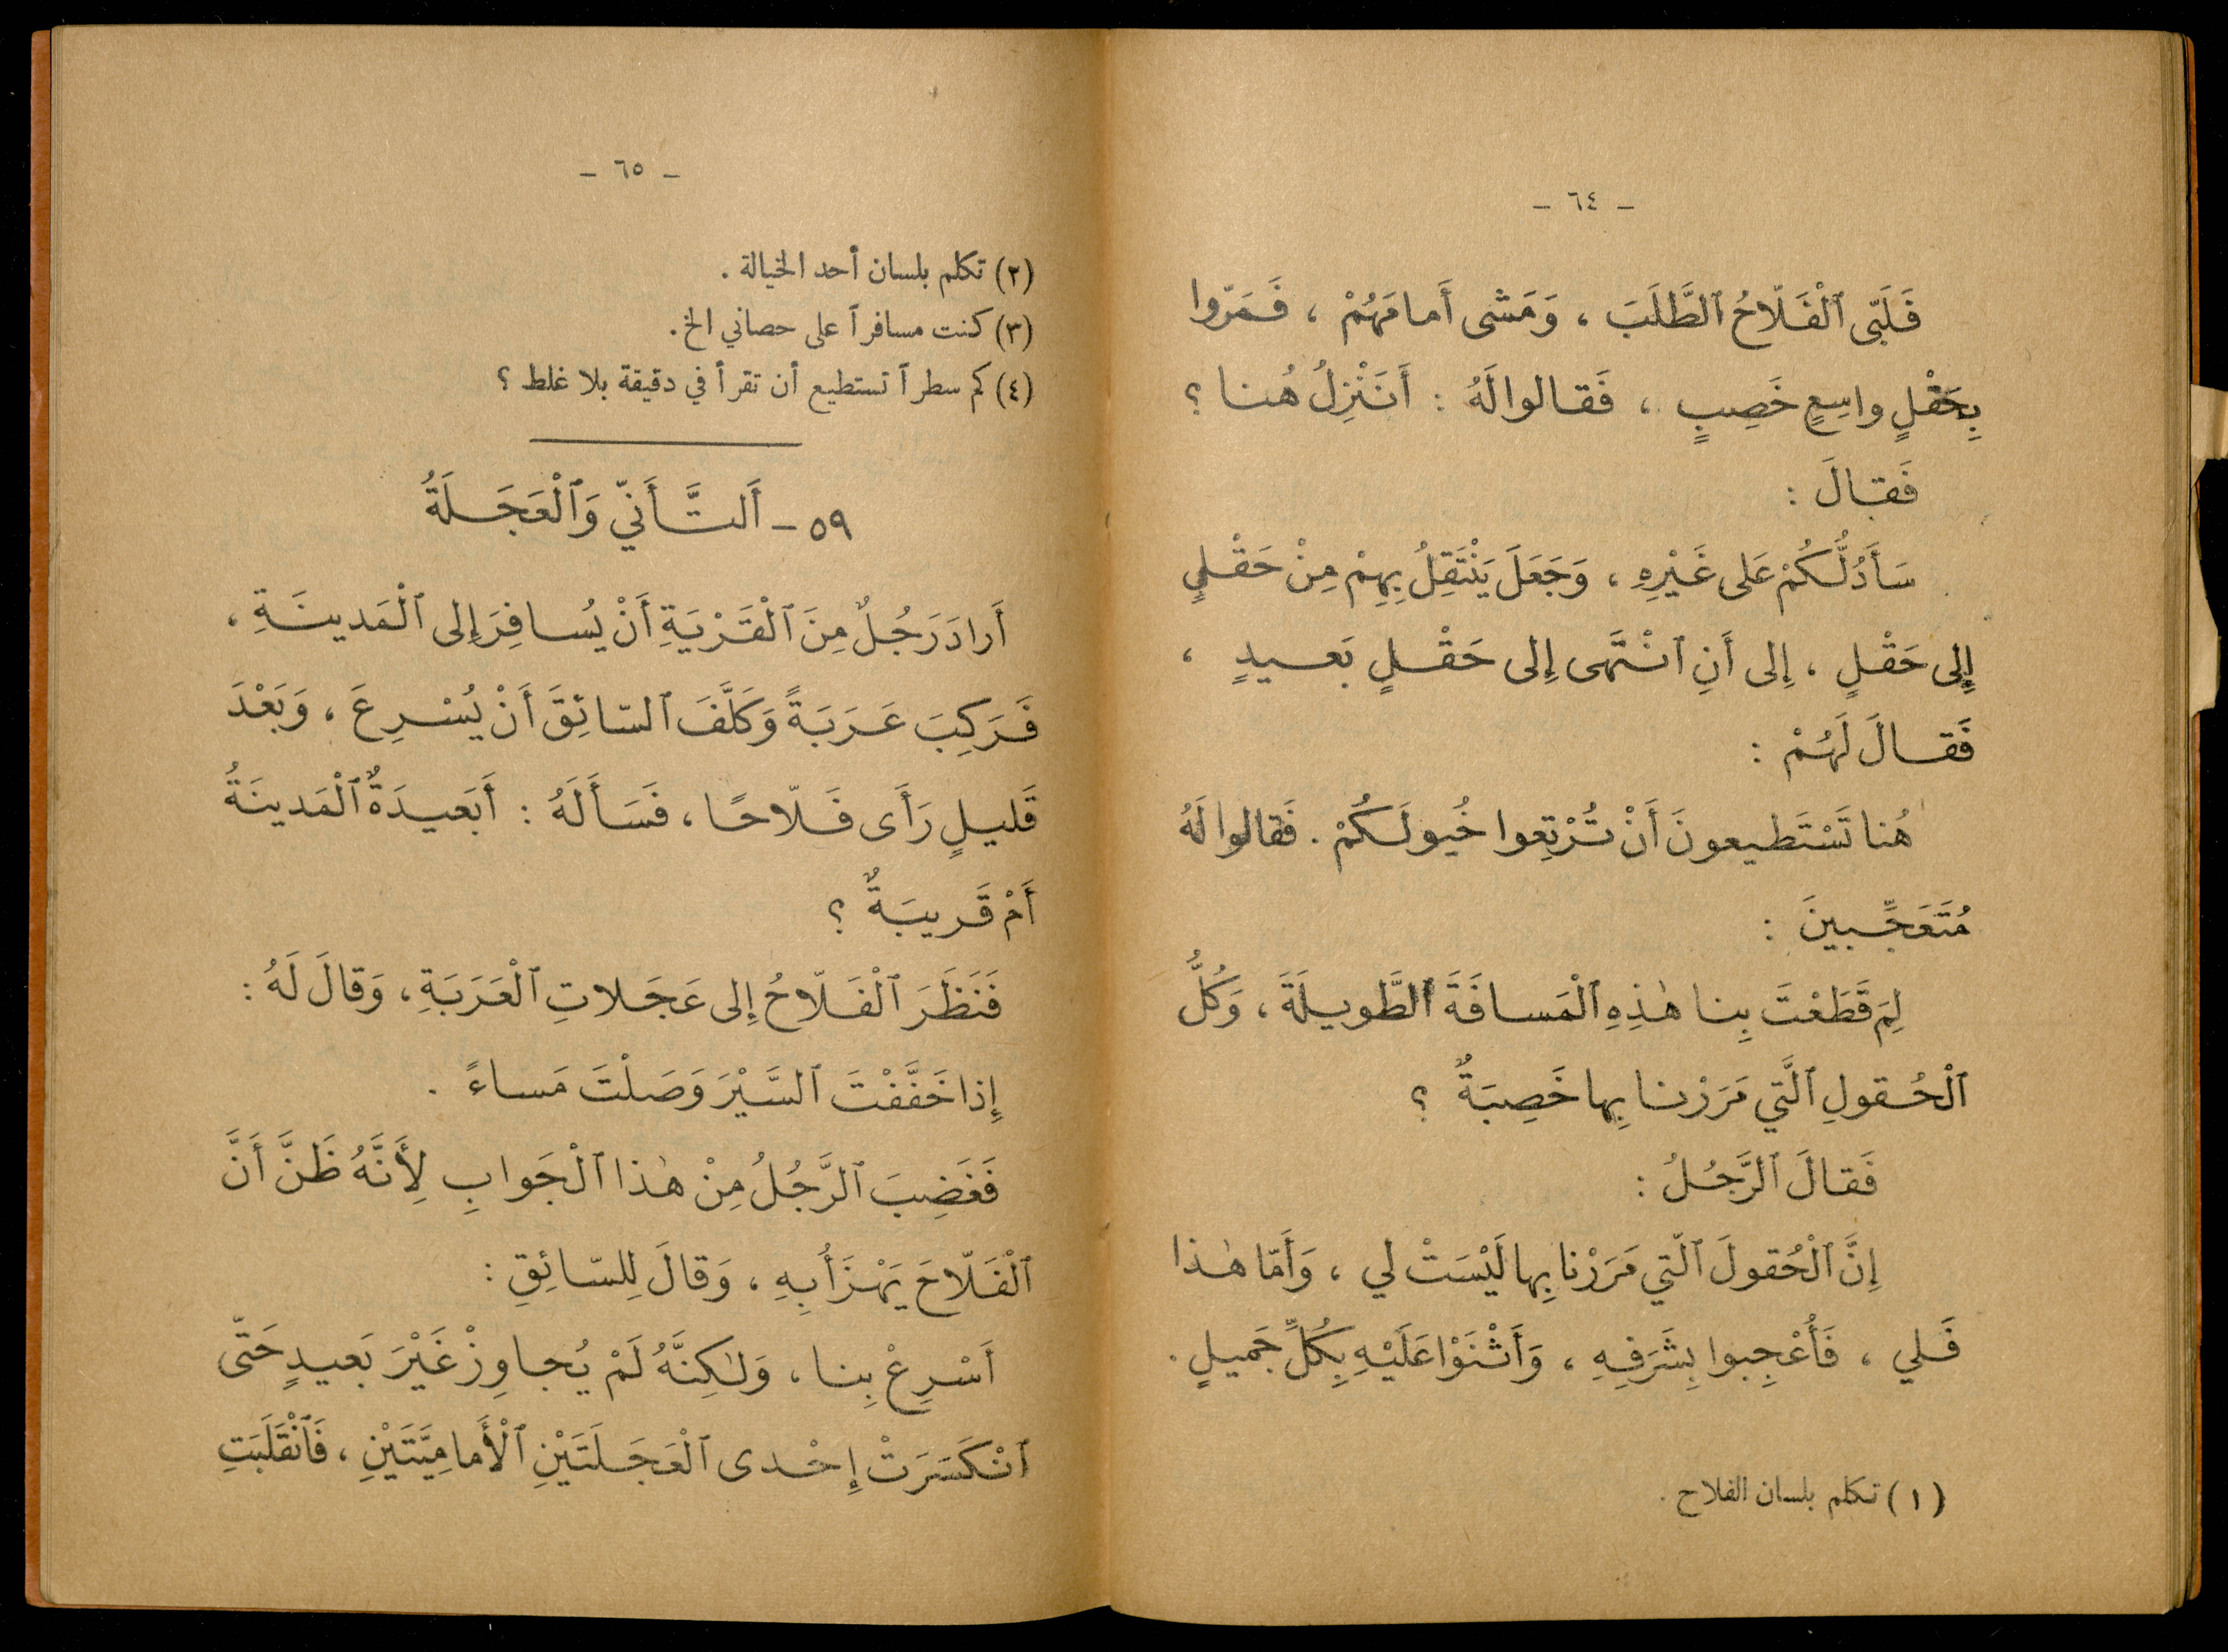 - ٦٤ -
فَلَبّى ٱلْفَلّاحُ ٱلطَّلَبَ ، وَمَشى أَمامَهُمْ ، فَمَرّوا
بِحَقْلٍ واسِعٍ خَصِبٍ ، فَقالوا لَهُ : أَنَنْزِلُ هُنا ؟
فَقالَ :
سَأَدُلُّكُمْ عَلى غَيْرِهِ ، وَجَعَلَ يَنْتَقِلُ بِهِمْ مِنْ حَقْلٍ
إِلى حَقْلٍ ، إِلى أَنِ ٱنْتَهى إِلى حَقْلٍ بَعيدٍ ،
فَقالَ لَهُمْ :
هُنا تَسْتَطيعونَ أَنْ تُرْتِعوا خُيولَكُمْ . فَقالوا لَهُ
مُتَعَجِّبينَ :
لِمَ قَطَعْتَ بِنا هٰذِهِ ٱلْمَسافَةَ ٱلطَّويلَةَ ، وَكُلُّ
ٱلْحُقولِ ٱلَّتي مَرَرْنا بِها خَصِبَةٌ ؟
فَقالَ ٱلرَّجُلُ :
إِنَّ ٱلْحُقولَ ٱلّتي مَرَرْنا بِها لَيْسَتْ لي ، وَأَمّا هٰذا
فَلي ، فَأُعْجِبوا بِشَرَفِهِ ، وَأَثْنَوْا عَلَيْهِ بِكُلِّ جَميلٍ .
(١) تكلم بلسان الفلاح .
- ٦٥ -
(٢) تكلم بلسان أحد الخيالة .
(٣) كنت مسافراً على حصاني الخ .
(٤) كم سطراً تستطيع أن تقرأ في دقيقة بلا غلط ؟
٥٩ - أَلتَّأَنّي وَٱلْعَجَلَةُ
أَرادَ رَجُلٌ مِنَ ٱلْقَرْيَةِ أَنْ يُسافِرَ إِلى ٱلْمَدينَةِ ،
فَرَكِبَ عَرَبَةً وَكَلَّفَ ٱلسّائِقَ أَنْ يُسْرِعَ ، وَبَعْدَ
قَليلٍ رَأَى فَلّاحًا ، فَسَأَلَهُ : أَبَعيدَةٌ ٱلْمَدينَةُ
أَمْ قَريبَةٌ ؟
فَنَظَرَ ٱلْفَلّاحُ إِلى عَجَلاتِ ٱلْعَرَبَةِ ، وَقالَ لَهُ :
إِذا خَفَّفْتَ ٱلسَّيْرَ وَصَلْتَ مَساءً .
فَغَضِبَ ٱلرَّجُلُ مِنْ هٰذا ٱلْجَوابِ لِأَنَّهُ ظَنَّ أَنَّ
ٱلْفَلّاحَ يَهْزَأُ بِهِ ، وَقالَ لِلسّائِقِ :
أَسْرِعْ بِنا ، وَلٰكِنَّهُ لَمْ يُجاوِزْ غَيْرَ بَعيدٍ حَتّى
ٱنْكَسَرَتْ إِحْدى ٱلْعَجَلَتَيْنِ ٱلْأَمامِيَّتَيْنِ ، فَٱنْقَلَبَتِ